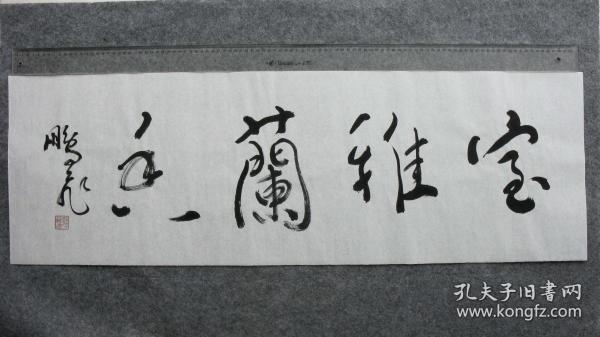 室雅蘭香
鵬飛
孔夫子旧書网
www.kongfz.com